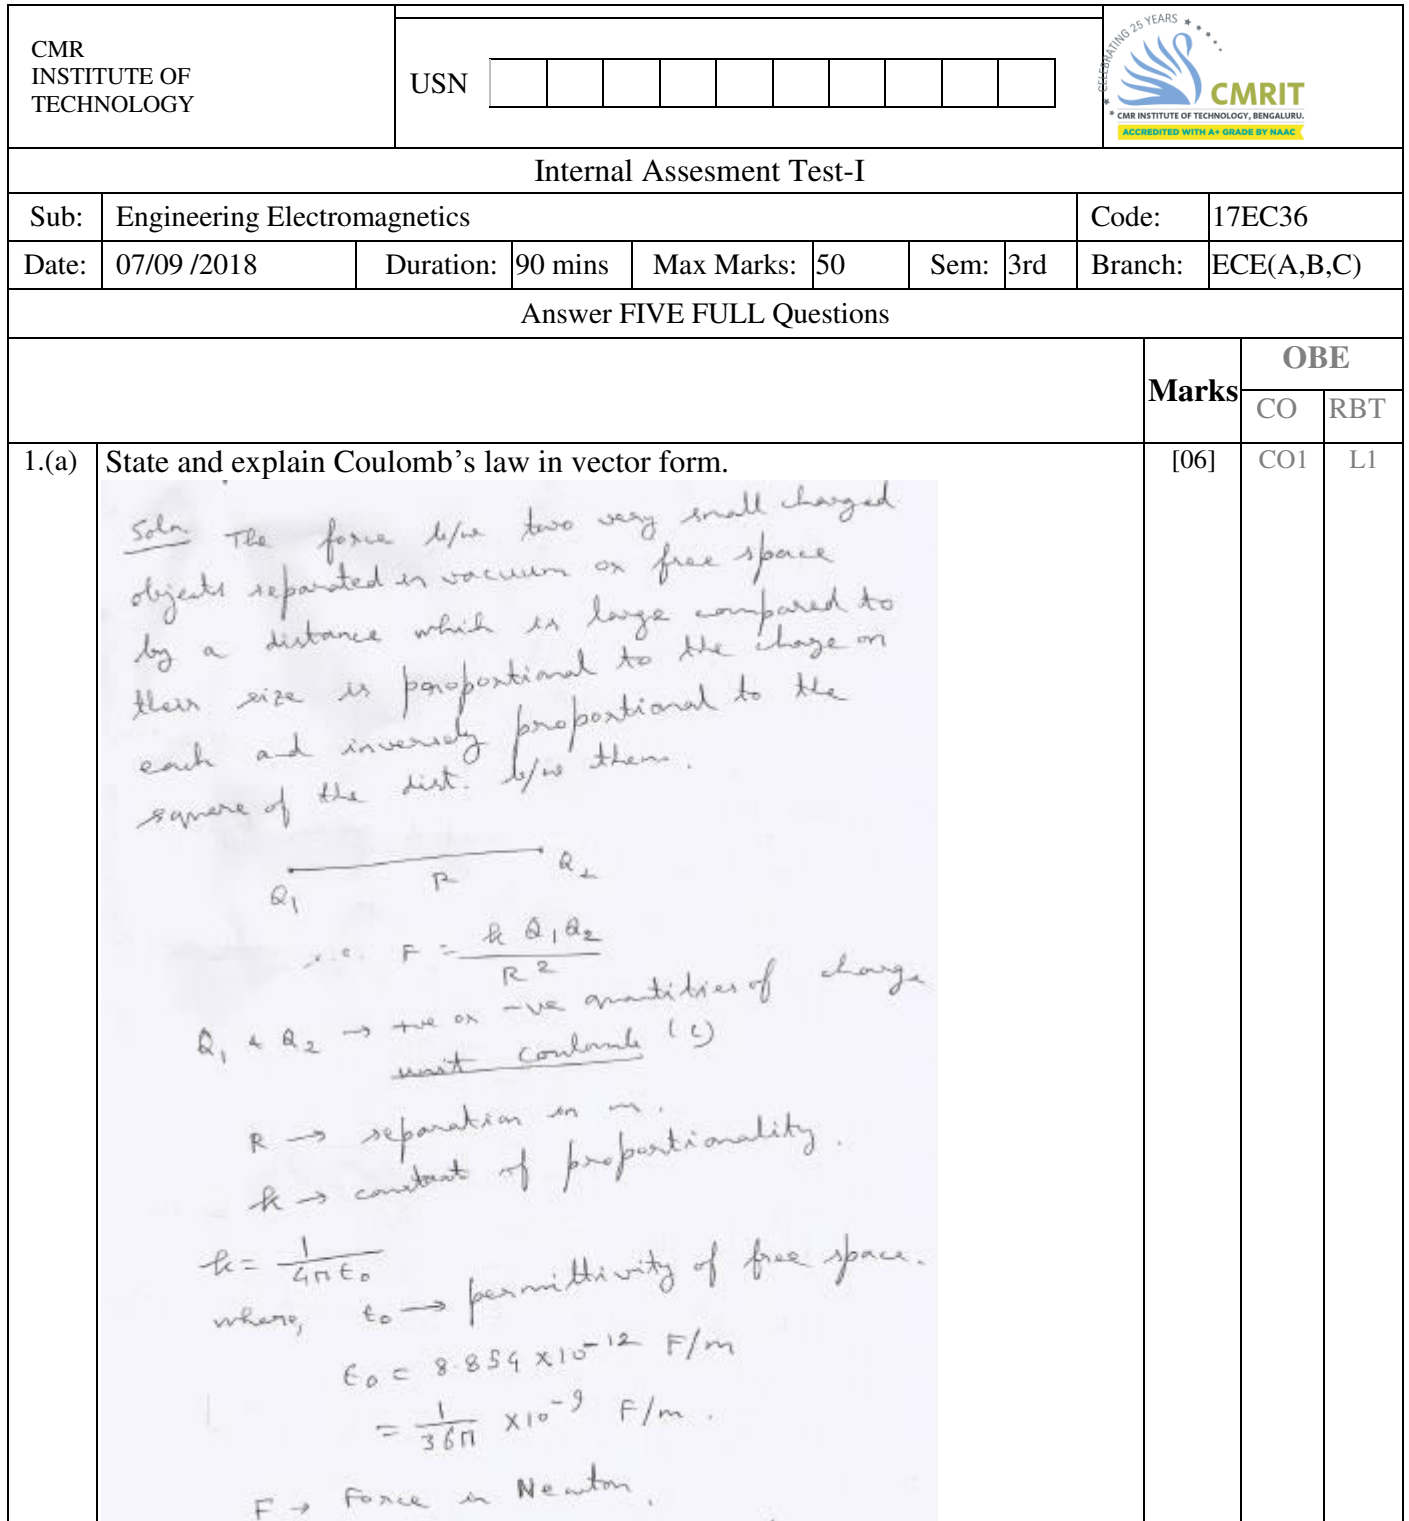 CMR
INSTITUTE OF
TECHNOLOGY
USN
CELEBRATING 25 YEARS
CMRIT
* CMR INSTITUTE OF TECHNOLOGY, BENGALURU.
ACCREDITED WITH A+ GRADE BY NAAC
Internal Assesment Test-I
Sub: Engineering Electromagnetics Code: 17EC36
Date: 07/09 /2018 Duration: 90 mins Max Marks: 50 Sem: 3rd Branch: ECE(A,B,C)
Answer FIVE FULL Questions
Marks OBE
CO RBT
1.(a) State and explain Coulomb's law in vector form. [06] CO1 L1
Soln The force b/w two very small charged
objects separated in vacuum or free space
by a distance which is large compared to
their size is proportional to the charge on
each and inversely proportional to the
square of the dist. b/w them.
Q₁ R Q₂
i.e. F = k Q₁Q₂ / R²
Q₁ & Q₂ → +ve or -ve quantities of charge
unit coulomb (C)
R → separation in m.
k → constant of proportionality.
k = 1 / 4π ϵ₀
where, ϵ₀ → permittivity of free space.
ϵ₀ = 8.854 × 10⁻¹² F/m
= 1/36π × 10⁻⁹ F/m.
F → Force in Newton.